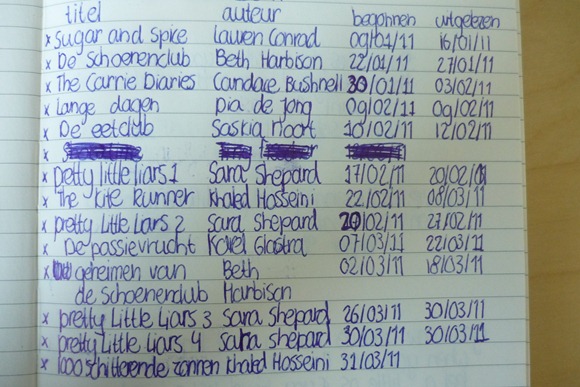 titel auteur begonnen uitgelezen
x Sugar and Spice Lauren Conrad 09/01/11 16/01/11
x De Schoenenclub Beth Harbison 22/01/11 27/01/11
x The Carrie Diaries Candace Bushnell 30/01/11 03/02/11
x Lange dagen pia de jong 09/02/11 09/02/11
x De eetclub Saskia Noort 10/02/11 12/02/11
x
x pretty little liars 1 Sara Shepard 17/02/11 20/02/11
x The Kite Runner Khaled Hosseini 22/02/11 08/03/11
x pretty Little Liars 2 Sara Shepard 20/02/11 27/02/11
x De passievrucht Karel Glastra 07/03/11 22/03/11
x geheimen van Beth 02/03/11 18/03/11
de schoenenclub Harbison
x pretty Little Liars 3 Sara Shepard 26/03/11 30/03/11
x pretty Little Liars 4 Sara Shepard 30/03/11 30/03/11
x 1000 schitterende zonnen Khaled Hosseini 31/03/11